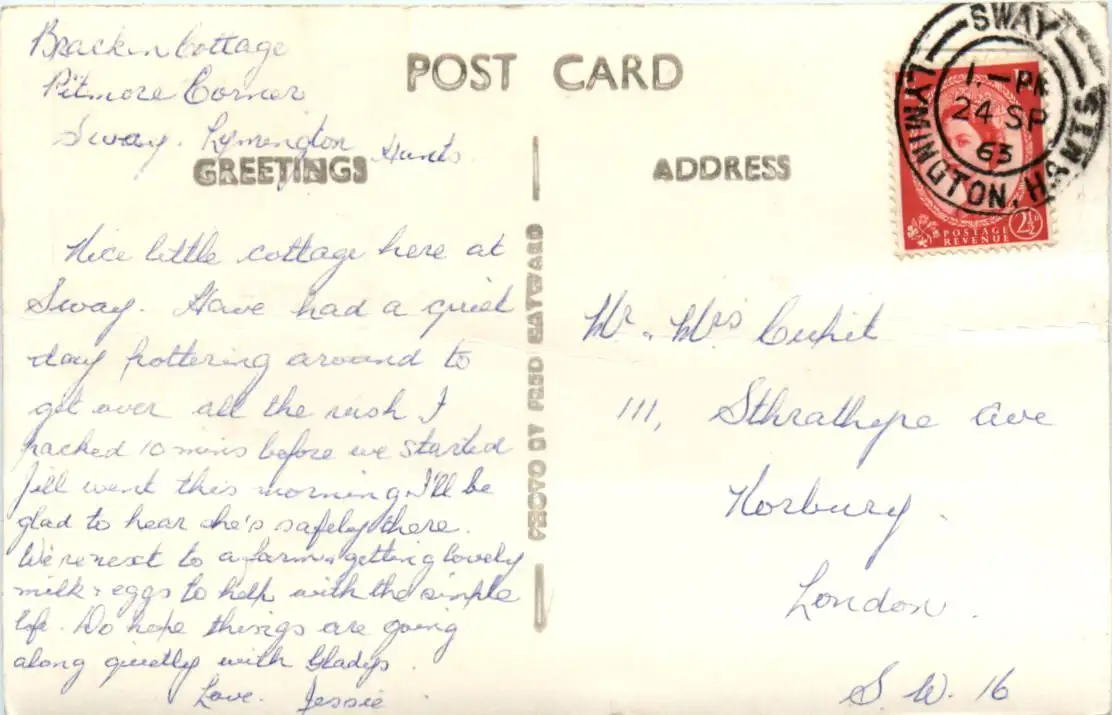 Bracken Cottage
Pitmore Corner
Sway. Lymington Hants.
POST CARD
GREETINGS
ADDRESS
Nice little cottage here at
Sway. Have had a quiet
day pottering around to
get over all the rush I
packed 10 mins before we started
Jill went this morning. I'll be
glad to hear she's safely there.
We're next to a farm & getting lovely
milk & eggs to help with the simple
life. Do hope things are going
along quietly with Gladys.
Love. Jessie.
PHOTO BY FRED HAYWARD
SWAY
1.-PM
24 SP
63
LYMINGTON, HANTS
POSTAGE
REVENUE
2½
Mr. Mrs
111, Sthrathype Ave
Norbury.
London.
S. W. 16